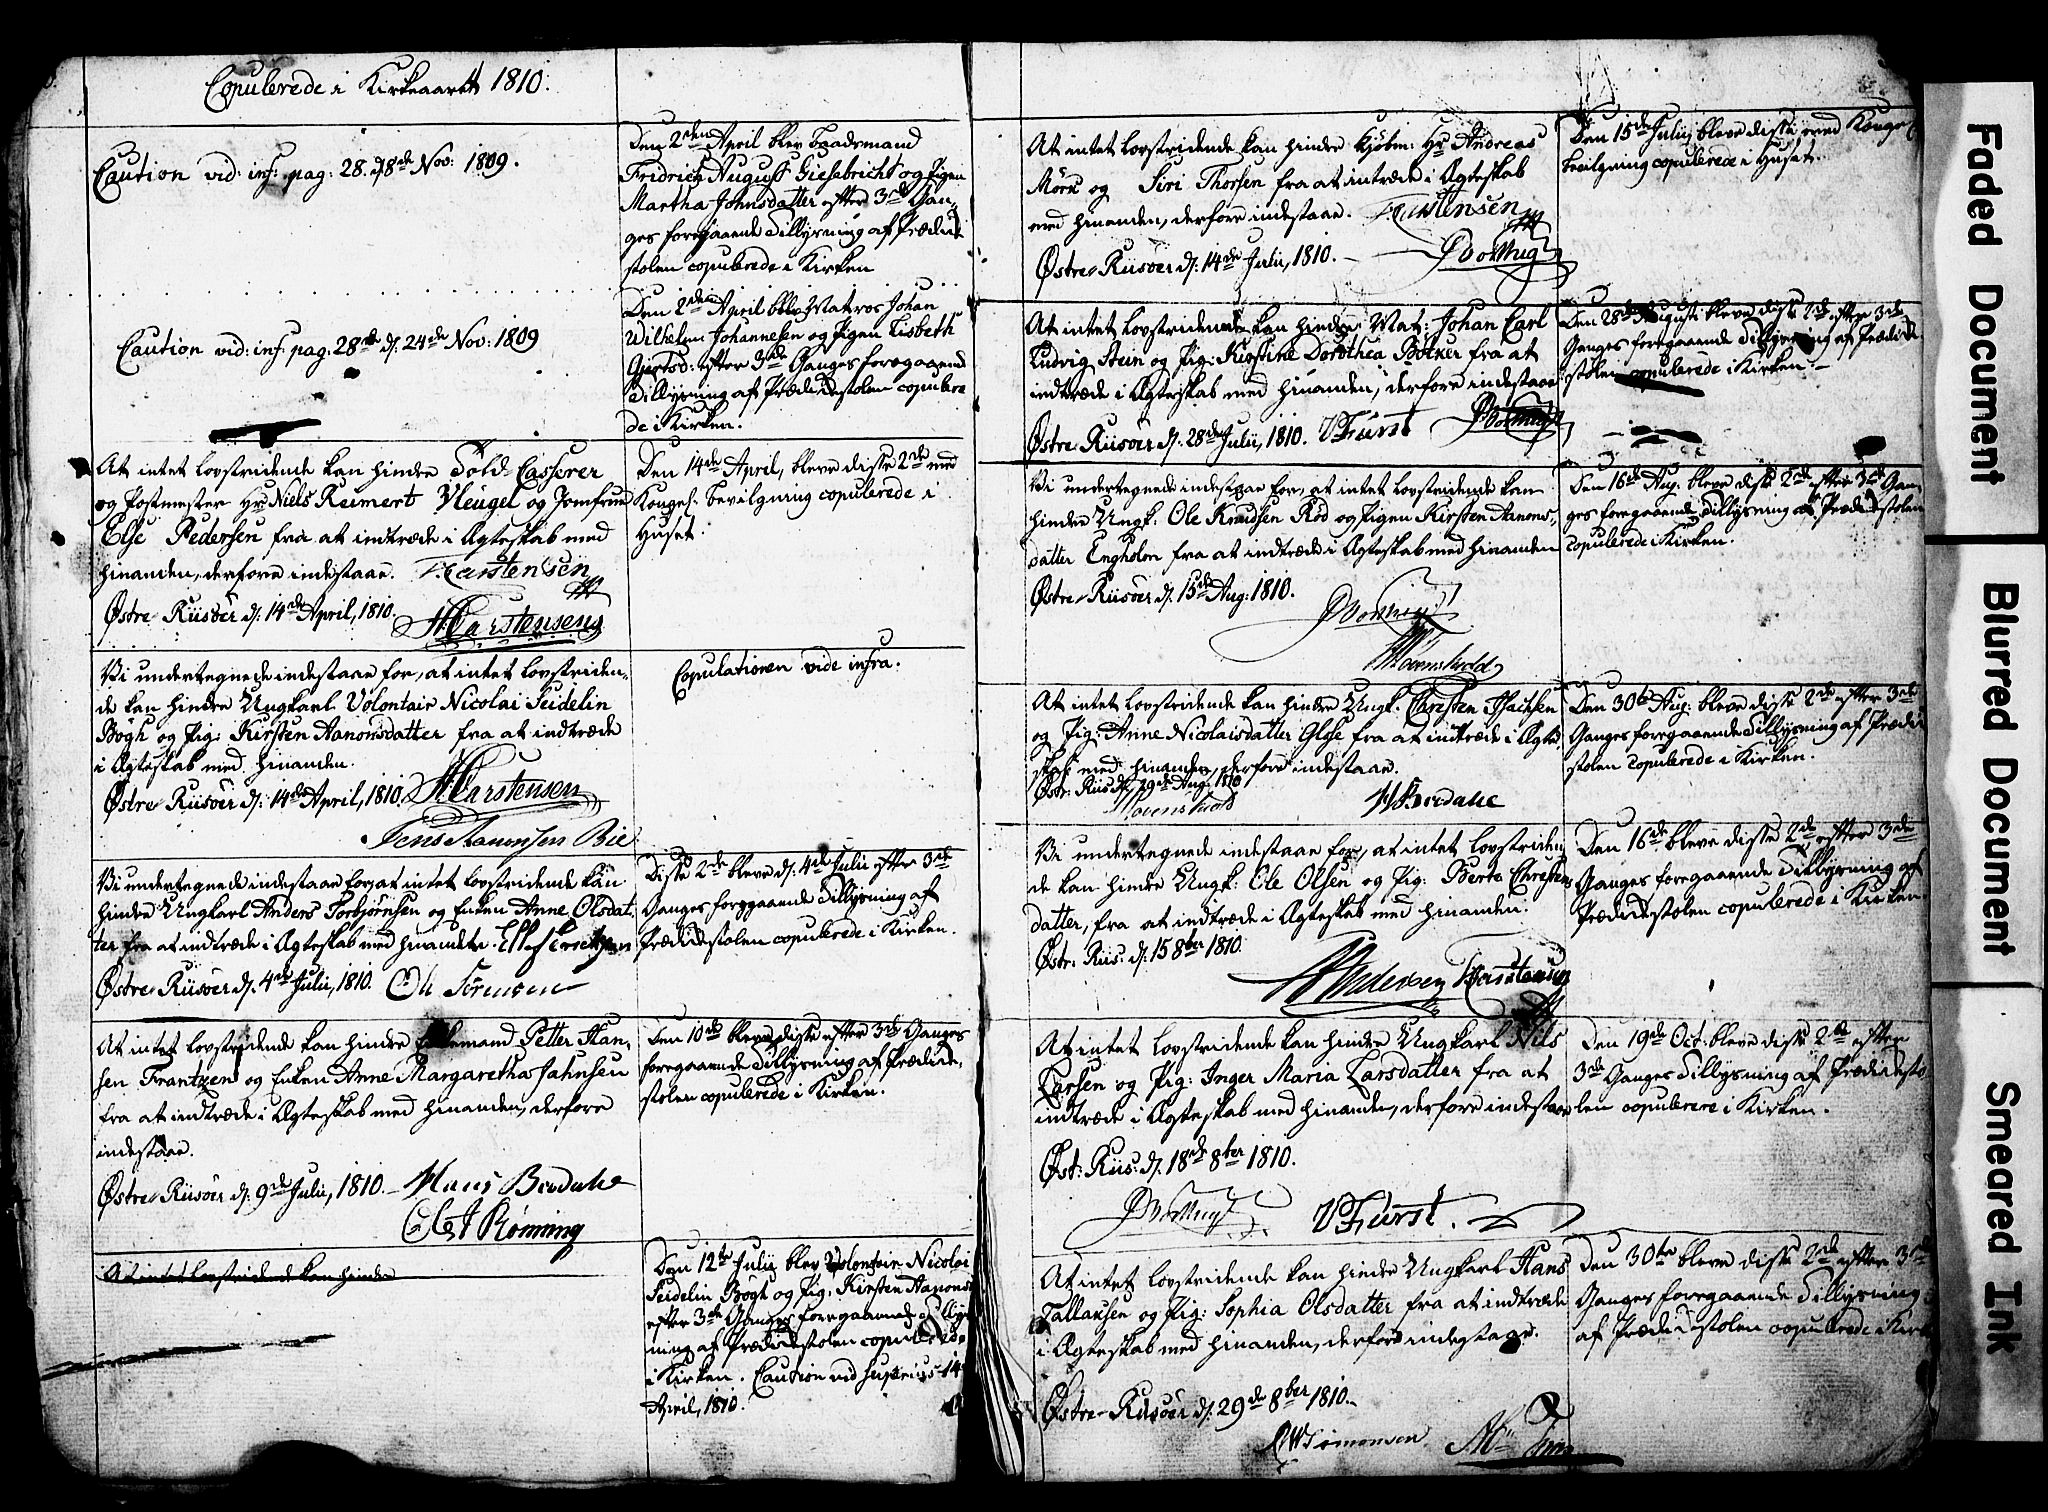 Copulerede i Kirkeaaret 1810.
Caution vid: inf: pag: 28. d. 8de Nov: 1809.
Den 2den April blev Baadsmand
Fridrich August Giesebricht og Pigen
Martha Johnsdatter efter 3de Gan-
ges foregaaende Tillysning af Prædike
stolen copulerede i Kirken
Caution vid: inf: pag: 28de d. 24de Nov: 1809
Den 2den April blev Matros Johan
Wilhelm Johannesen og Pigen Lisbeth
Giertsd: efter 3de Ganges foregaaende
Tillysning af Prædikestolen copulere
de i Kirken.
At intet lovstridende kan hindre Told Casserer
og Postmester Hr Niels Reimert Vleugel og Jomfrue
Else Pedersen fra at indtræde i Ægteskab med
hinanden, derfore indestaae. F Carstensen
Østre Riisöer d. 14de April, 1810. H Carstensen
Den 14de April, bleve disse 2de med
Kongel: bevilgning copulerede i
Huset.
Vi undertegnede indestaae for, at intet lovstriden-
de kan hindre Ungkarl Volontair Nicolai Seidelin
Bögh og Pig: Kirsten Aanonsdatter fra at indtræde
i Ægteskab med hinanden.
Østre Riisöer d. 14de April, 1810 H Carstensen
Jens Aanonsen Bie
Copulationen vide infra.
Vi undertegnede indestaae for, at intet lovstridende kan
hindre Ungkarl Anders Torbjörnsen og Enken Anne Olsdat-
ter fra at indtræde i Ægteskab med hinanden.
Østre Riisöer d. 4de Julii, 1810. Ole Sörensen
Disse 2de bleve d. 4de Julii efter 3de
Ganges foregaaende Tillysning af
Prædikestolen copulerede i Kirken.
At intet lovstridende kan hindre Enkemand Petter Han-
sen Frantzen og Enken Anne Margaretha Jahnsen
fra at indtræde i Ægteskab med hinanden, derfore
indestaae.
Østre Riisöer d. 9de Julii, 1810. Hans Bredahe
Ole J Rönning
Den 10de bleve disse efter 3de Ganges
foregaaende Tillysning af Prædike-
stolen copulerede i Kirken.
At intet lovstridende kan hindre
Den 12te Julij blev Volontair Nicolai
Seidelin Bögh og Pig. Kirsten Aanonsd
efter 3de Ganges foregaaende Tillys-
ning af Prædikestolen copulerede
i Kirken. Caution vid superius 14
April, 1810.
At intet lovstridende kan hindre Kjöbm: Hr Andreas
Mörk og Siri Thorsen fra at intræde i Ægteskab
med hinanden, derfore indestaae. F Carstensen
Østre Riisöer d. 14de Julii, 1810.
Den 15de Julij bleve disse med Konge
bevilgning copulerede i Huset.
At intet lovstridende kan hindre Mat: Johan Carl
Ludvig Stein og Pig: Kirstine Dorothea Bölker fra at
indtræde i Ægteskab med hinanden, derfore indestaae
Østre Riisöer d. 28de Julii, 1810. V Fürst
Den 28de Augusti bleve disse 2de efter 3de
Ganges foregaaende Tillysning af Prædike
stolen copulerede i Kirken.
Vi undertegnede indestaae for, at intet lovstridende kan
hindre Ungk: Ole Knudsen Röd og Pigen Kirsten Aanons-
datter Engholm fra at indtræde i Ægteskab med hinanden
Østre Riisöer d. 15de Aug: 1810.
Den 16de Aug. bleve disse 2de efter 3de Gan-
ges foregaaende Tillysning af Prædikestolen
copulerede i Kirken.
At intet lovstridende kan hindre Ungk. Christen Isachsen
og Pig: Anne Nicolaisdatter Glse fra at indtræde i Ægte
skab med hinanden, derfore indestaae.
Østr: Riis d. 29de Aug: 1810
H Bredahe
Den 30te Aug: bleve disse 2de efter 3de
Ganges foregaaende Tillysning af Prædike
stolen copulerede i Kirken.
Vi undertegnede indestaae for, at intet lovstriden
de kan hindre Ungk: Ole Olsen og Pig: Berte Christens
datter, fra at indtræde i Ægteskab med hinanden.
Østr: Riis: d. 15 8ber 1810.
Andersen F Carstensen
Den 16de bleve disse 2de efter 3de
Ganges foregaaende Tillysning af
Prædikestolen copulerede i Kirken
At intet lovstridende kan hindre Ungkarl Nils
Larsen og Pig: Inger Maria Larsdatter fra at
indtræde i Ægteskab med hinanden, derfore indestaae
Øst: Riis: d. 18de 8ber 1810.
V Fürst.
Den 19de Oct: bleve disse 2de efter
3de Ganges Tillysning af Prædikesto
len copulerede i Kirken.
At intet lovstridende kan hindre Ungkarl Hans
Tallaksen og Pig: Sophia Olsdatter fra at indtræde
i Ægteskab med hinanden, derfore indestaae.
Østre Riisöer d. 29de 8ber 1810.
Simonsen
Den 30te bleve disse 2de efter 3de
Ganges foregaaende Tillysning
af Prædikestolen copulerede i Kirk
Faded Document
Blurred Document
Smeared Ink